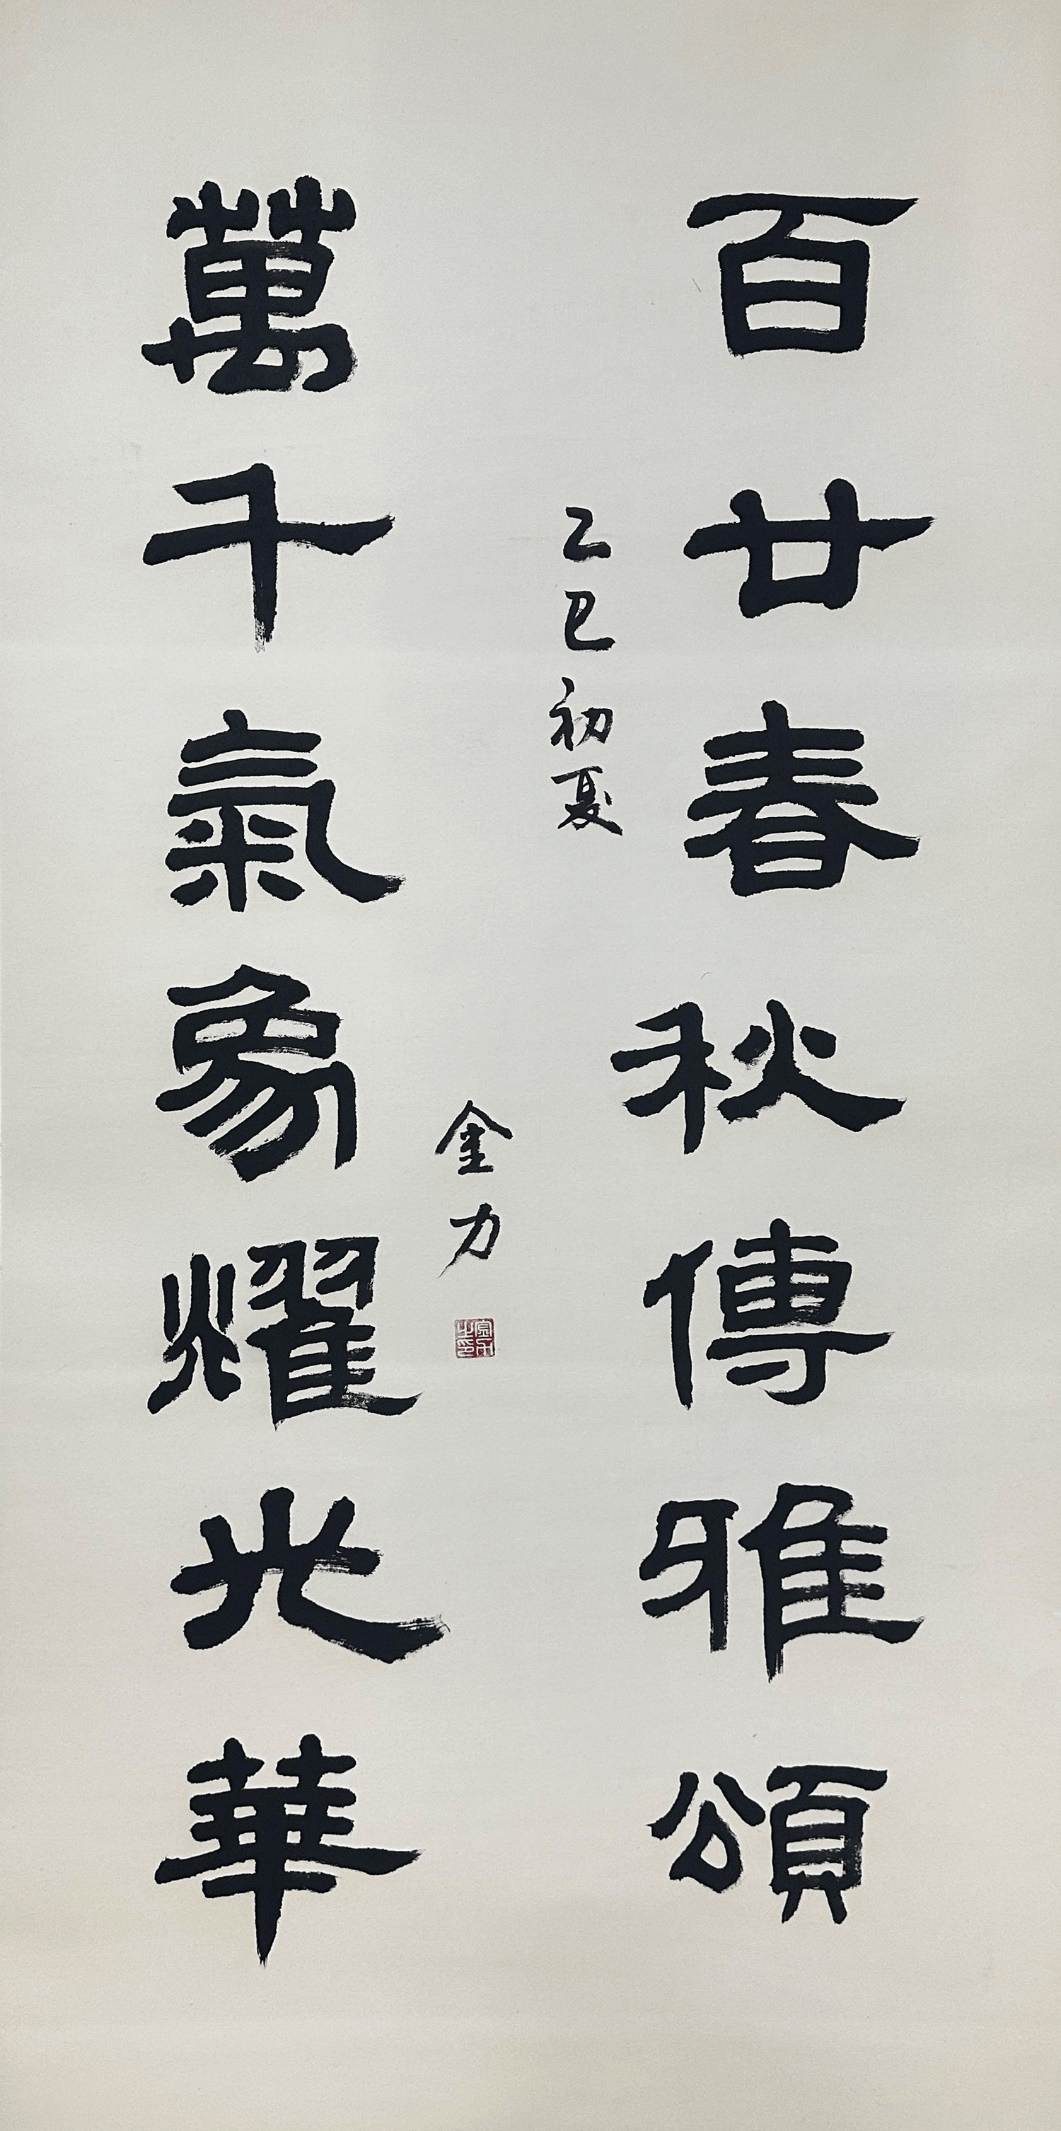 百廿春秋傳雅頌
乙巳初夏
萬千氣象耀光華
金力